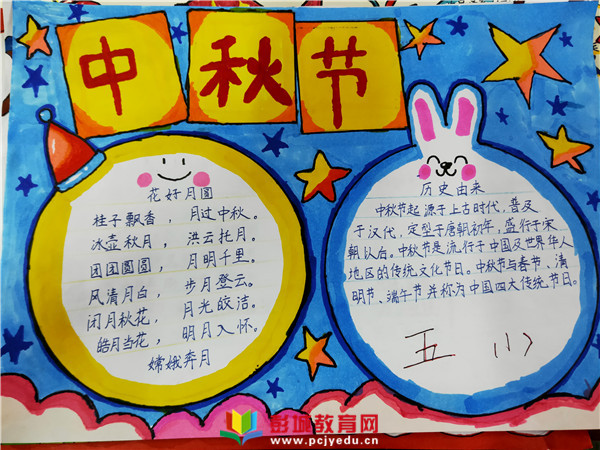 中秋节
花好月圆
桂子飘香，月过中秋。
冰壶秋月，洪云托月。
团团圆圆，月明千里。
风清月白，步月登云。
闭月秋花，月光皎洁。
皓月当花，明月入怀。
嫦娥奔月
历史由来
中秋节起源于上古时代，普及
于汉代，定型于唐朝初年，盛行于宋
朝以后。中秋节是流行于中国及世界华人
地区的传统文化节日。中秋节与春节、清
明节、端午节并称为中国四大传统节日。
五 小
彭城教育网
www.pcjyedu.cn